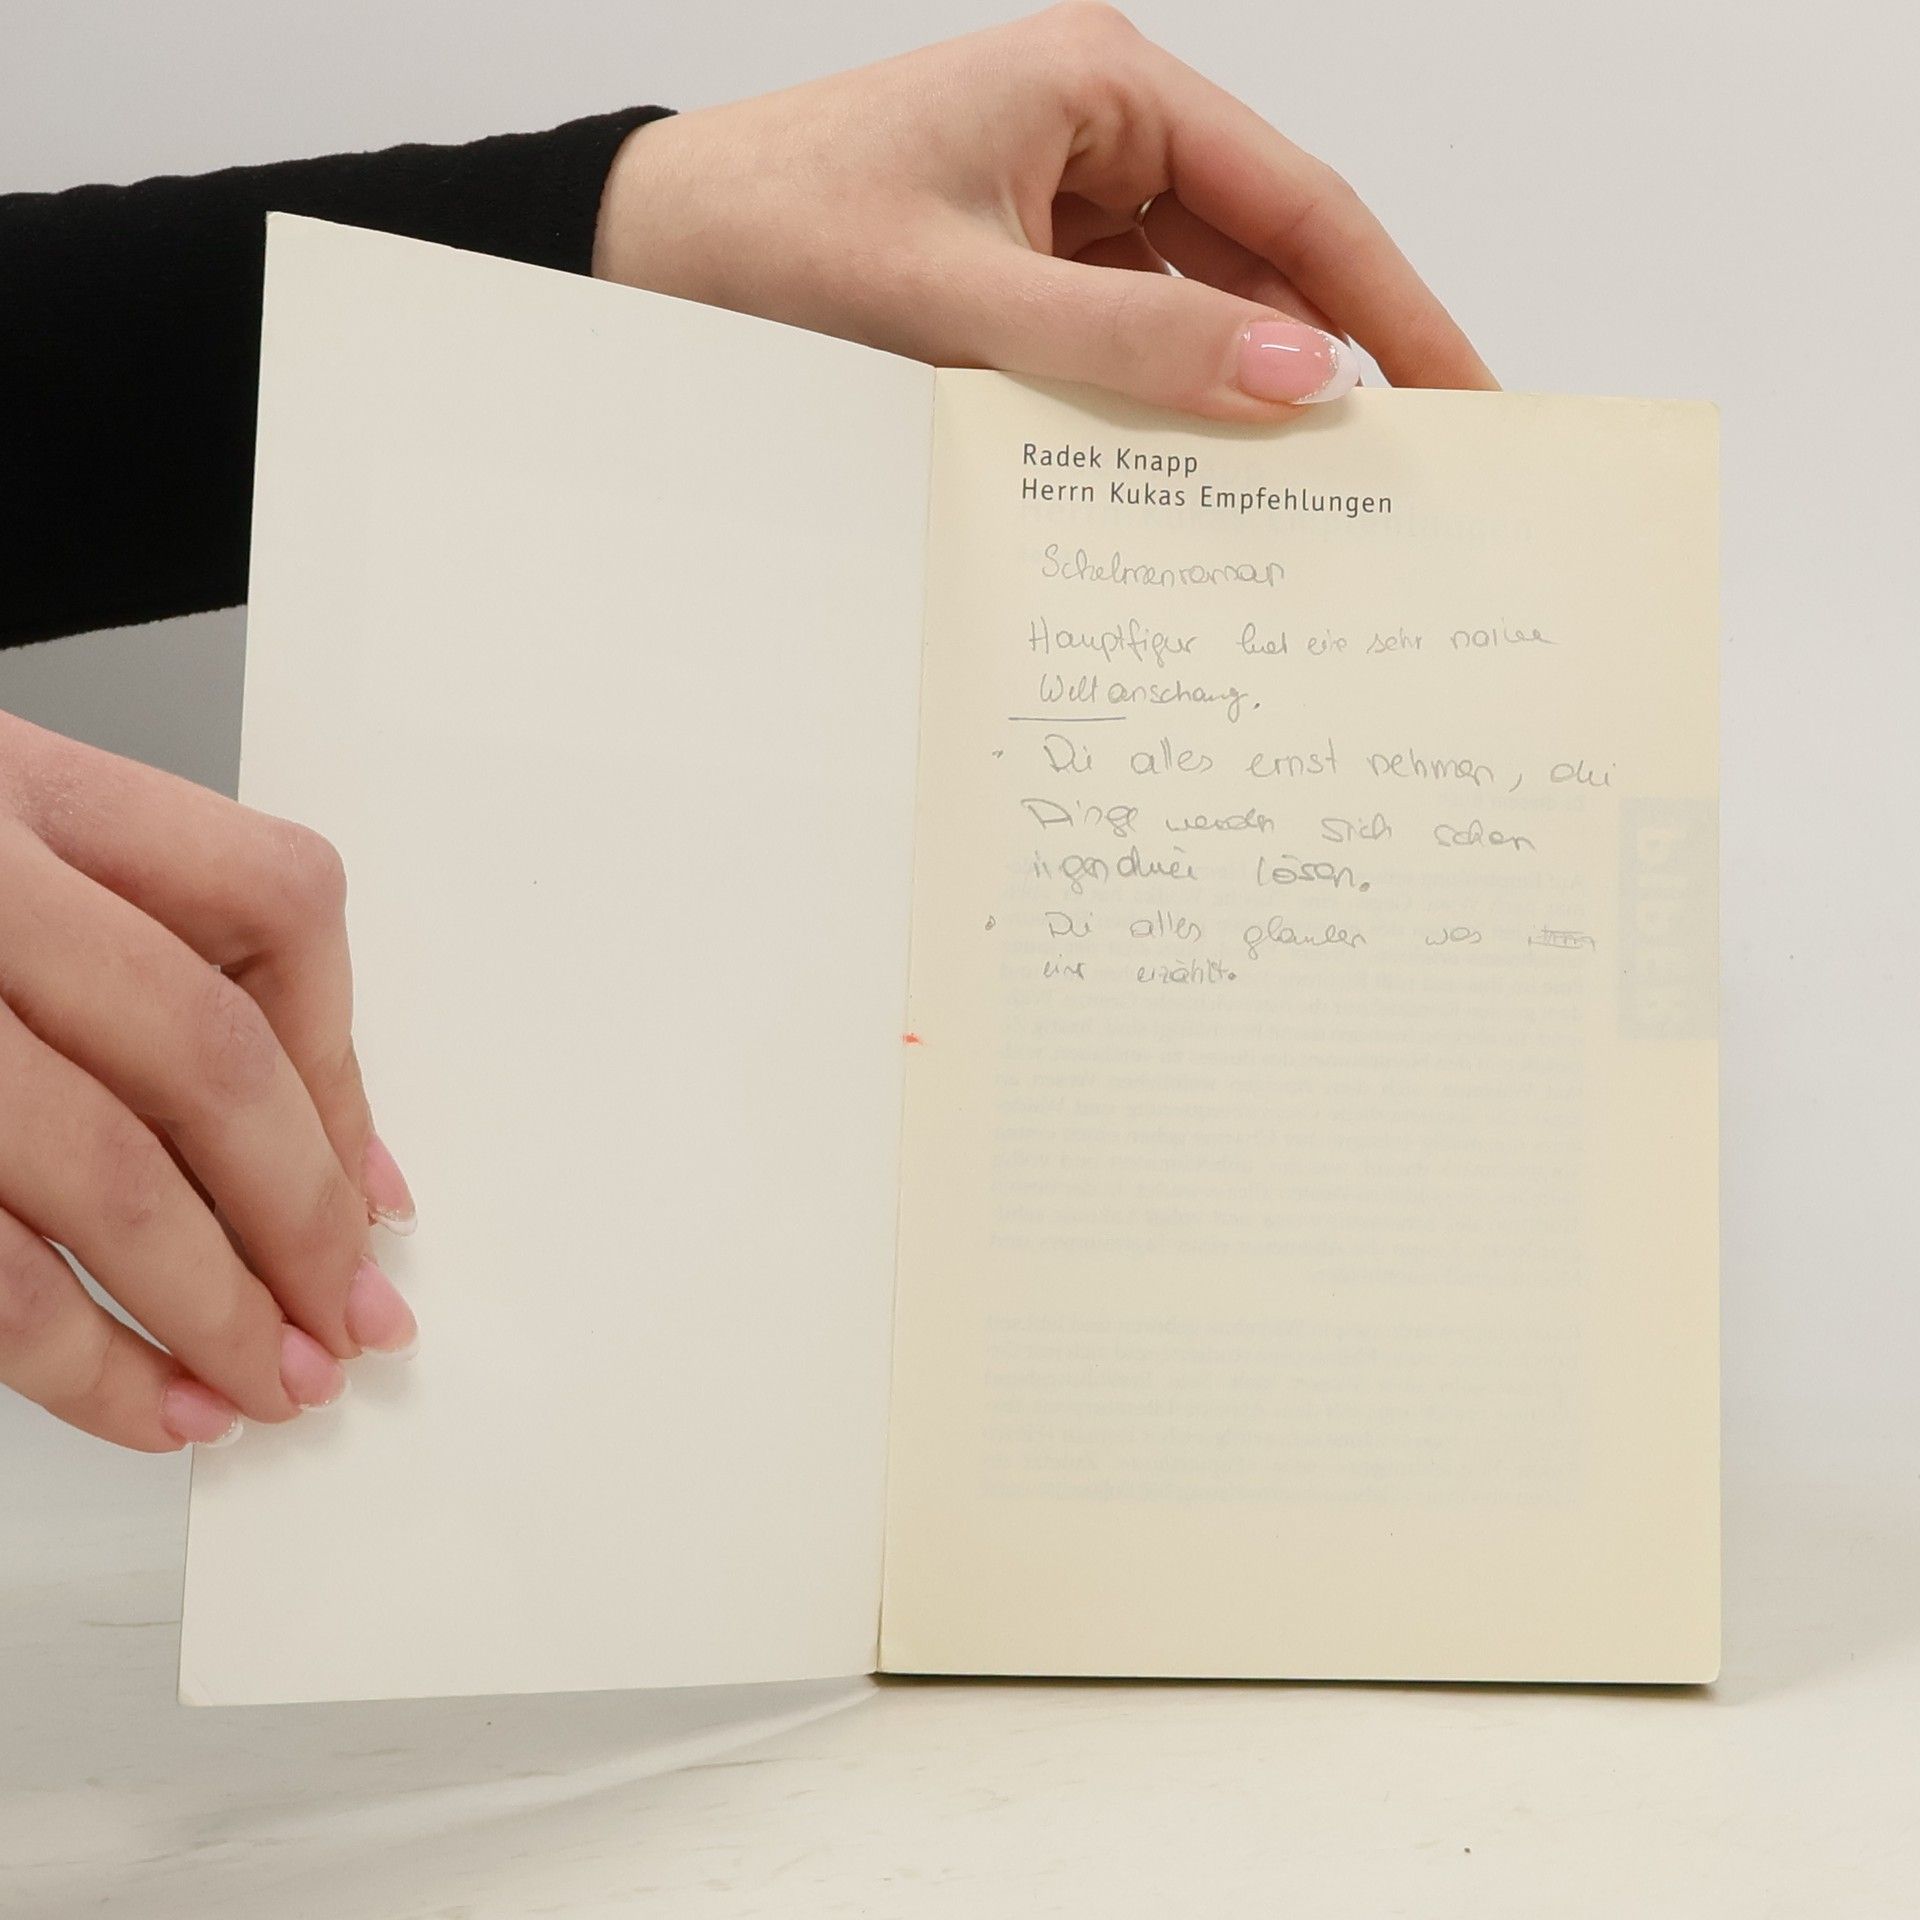 Radek Knapp
Herrn Kukas Empfehlungen
Schelmenroman
Hauptfigur hat eine sehr naive
Weltanschaung.
Die alles ernst nehmen, die
Dinge werden sich schon
irgendwie lösen.
Die alles glauben was
ihr erzählt.